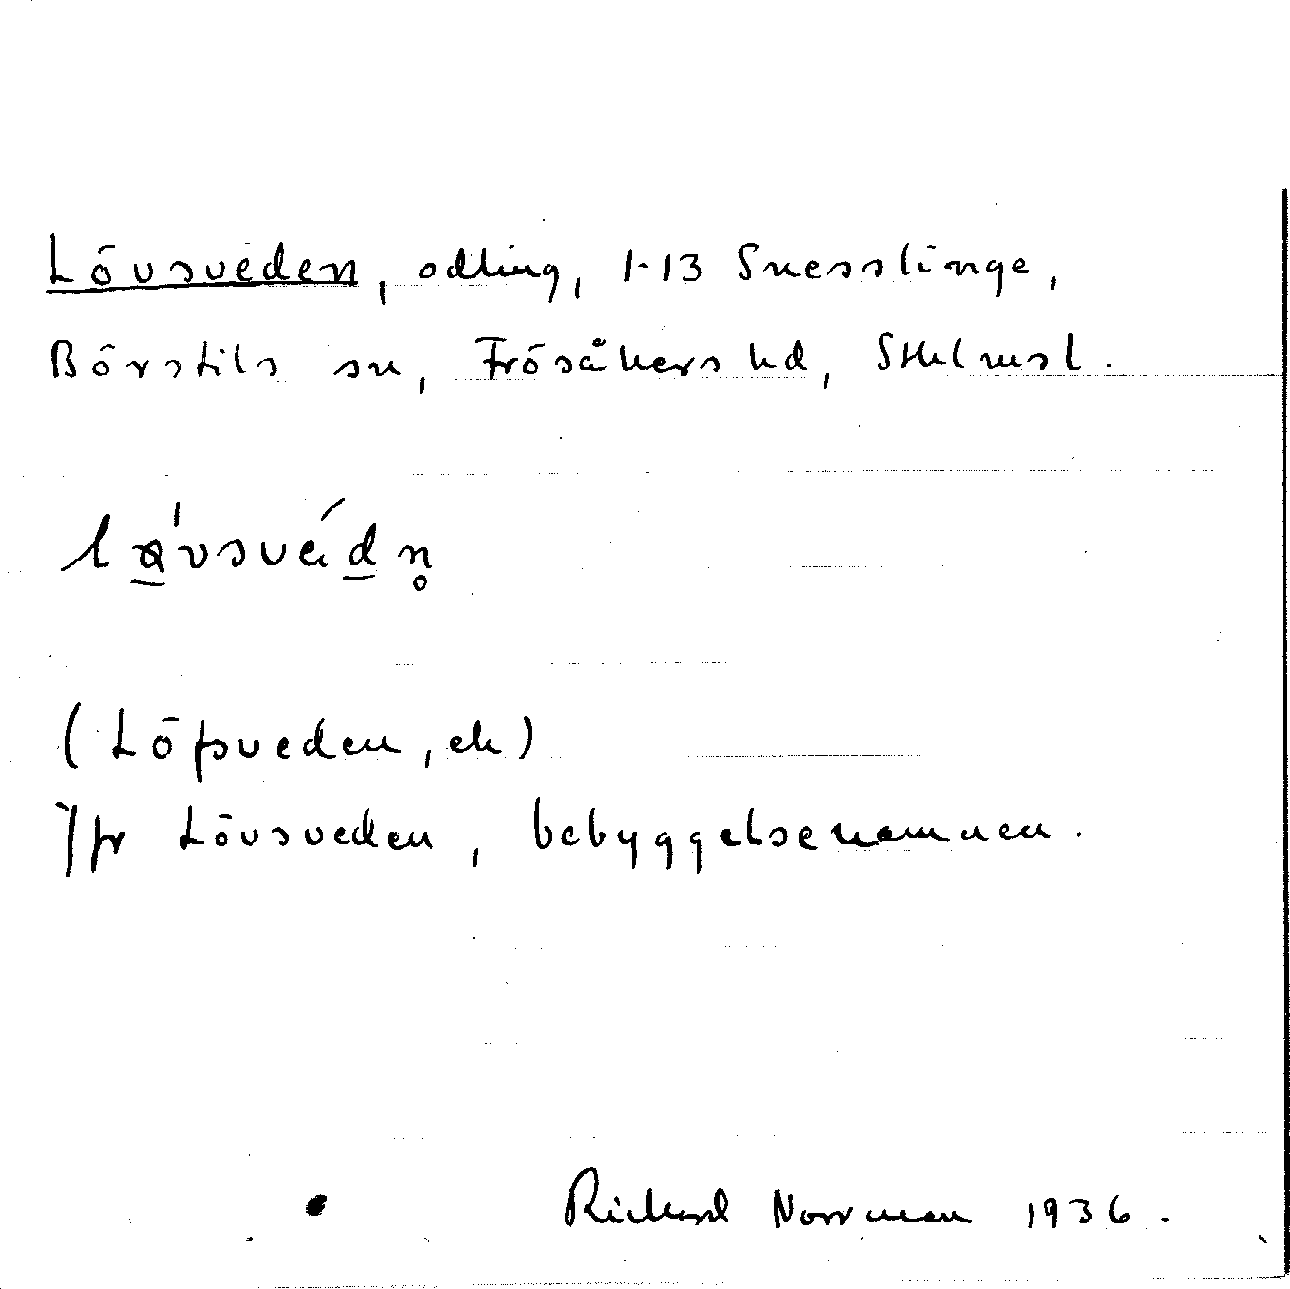 Lövsveden, odling, 1-13 Snesslinge,
Börstils sn, Frösåkers hd, Sthlms l.
(Löfsveden, ek)
Jfr Lövsveden, bebyggelsenamnen.
Richard Norrman 1936.